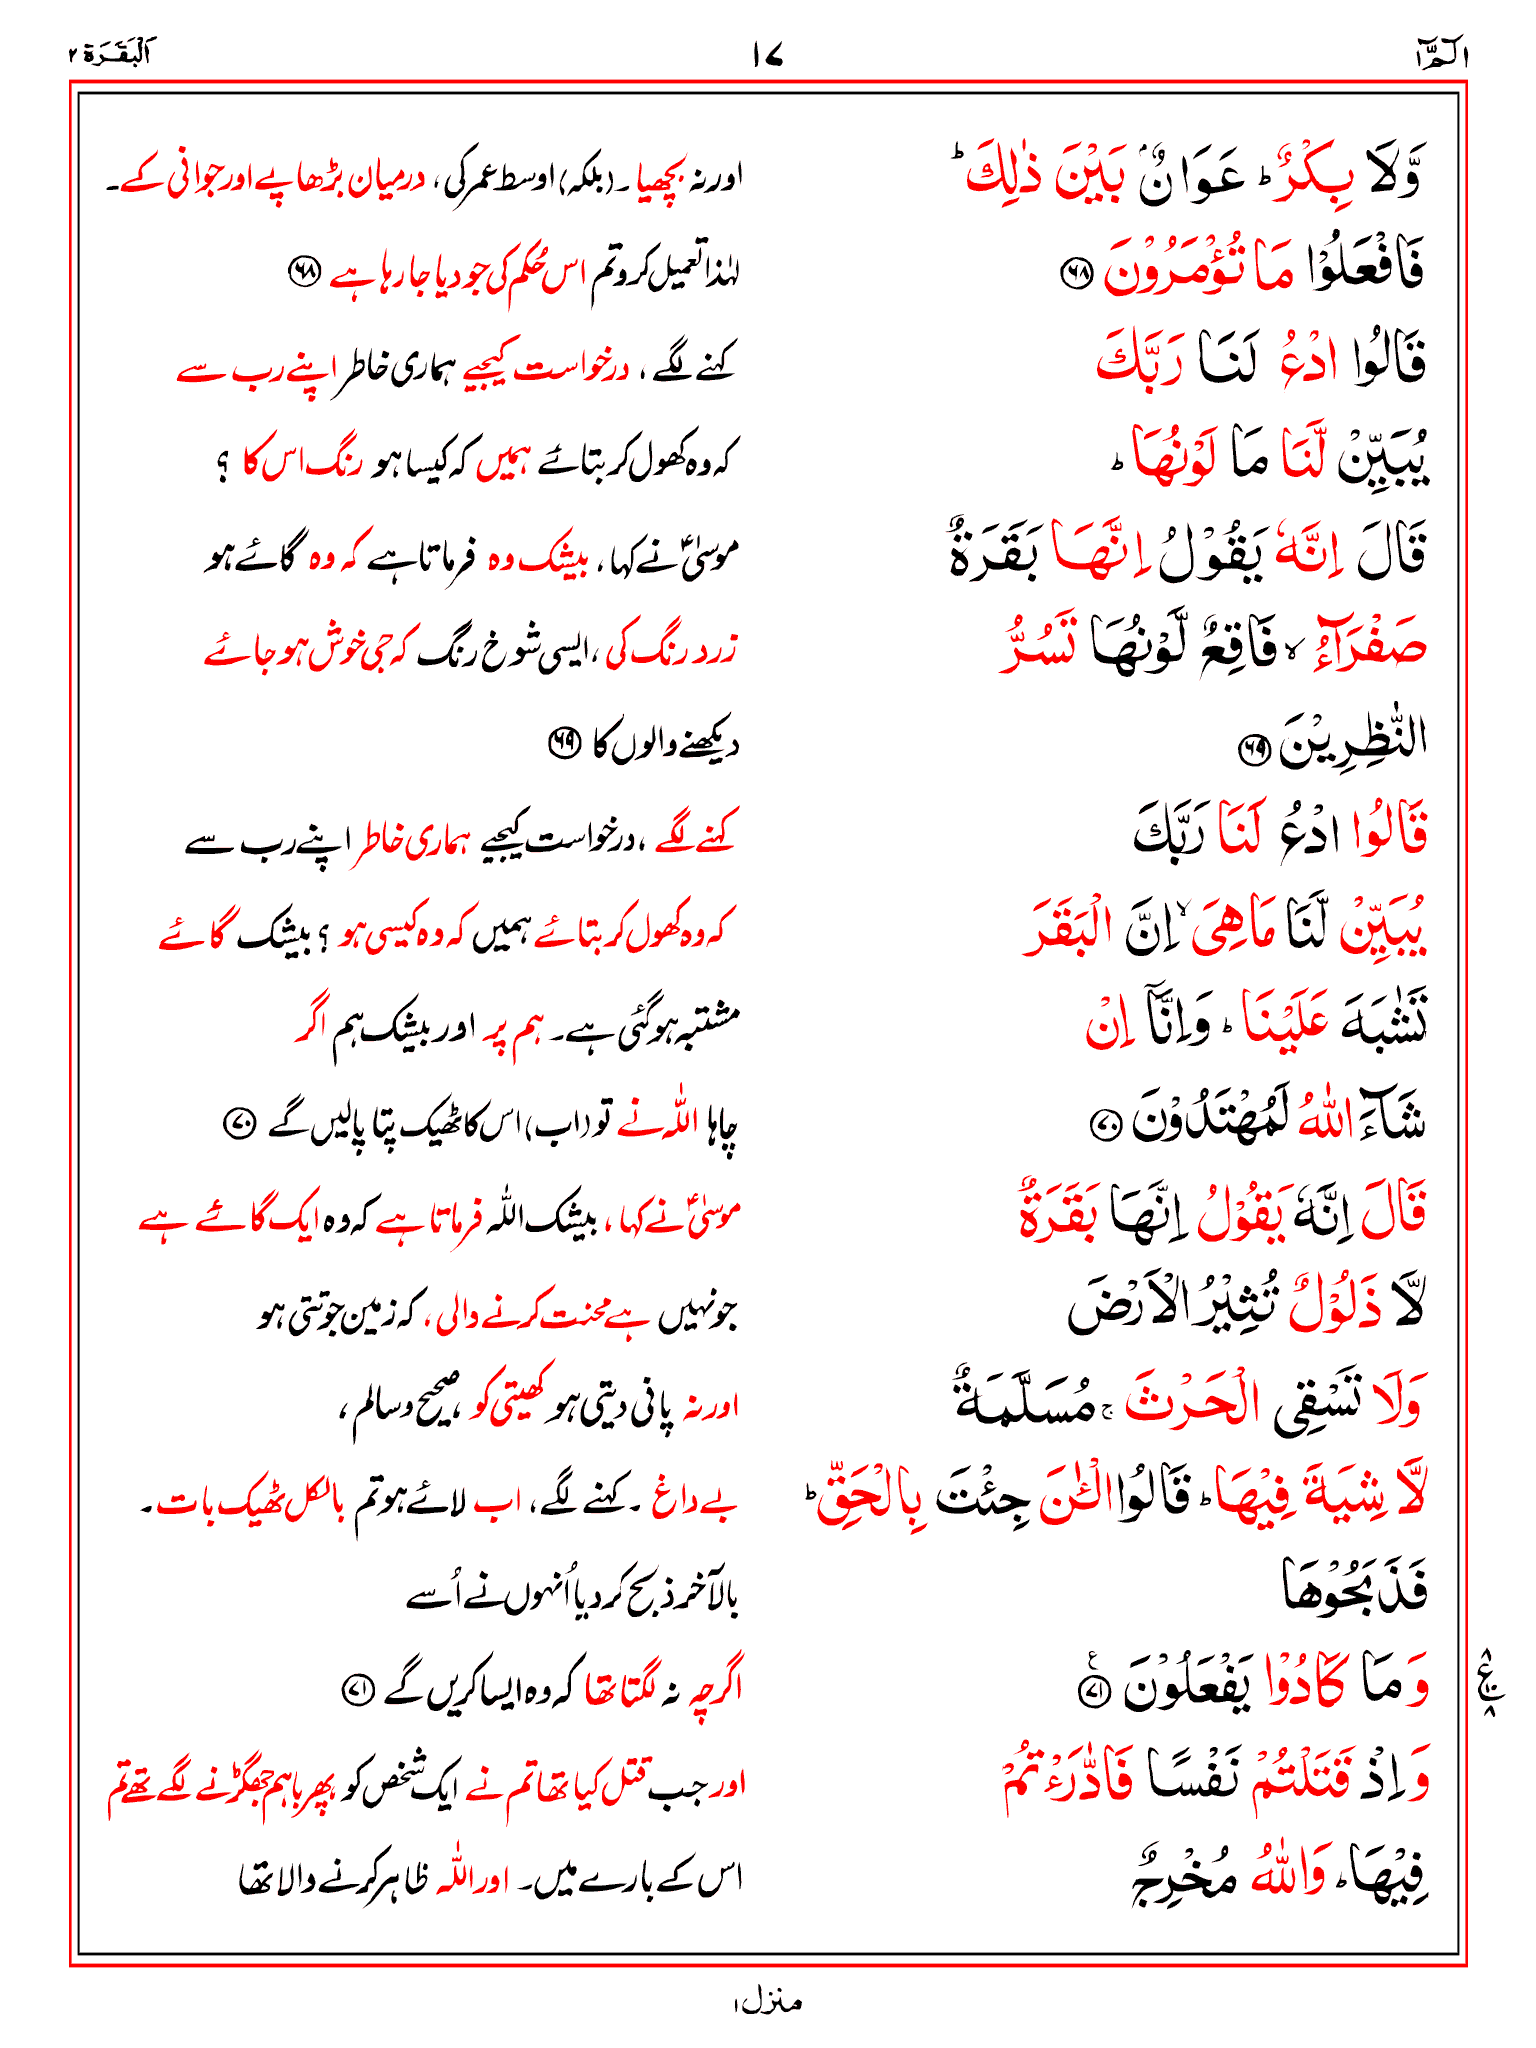 الٓمّٓ ١ ١٧ اَلْبَقَرَة ٢
وَّلَا بِكْرٌ ؕ عَوَانٌۢ بَيْنَ ذٰلِكَ ؕ اور نہ بچھیا۔ (بلکہ) اوسط عمر کی، درمیان بڑھاپے اور جوانی کے۔
فَافْعَلُوْا مَا تُؤْمَرُوْنَ ﴿۶۸﴾ لہٰذا تعمیل کرو تم اس حُکم کی جو دیا جا رہا ہے ﴿۶۸﴾
قَالُوا ادْعُ لَنَا رَبَّكَ کہنے لگے، درخواست کیجیے ہماری خاطر اپنے رب سے
يُبَيِّنْ لَّنَا مَا لَوْنُهَا ؕ کہ وہ کھول کر بتائے ہمیں کہ کیسا ہو رنگ اس کا ؟
قَالَ اِنَّهٗ يَقُوْلُ اِنَّهَا بَقَرَةٌ موسیٰؑ نے کہا، بیشک وہ فرماتا ہے کہ وہ گائے ہو
صَفْرَآءُ ۙ فَاقِعٌ لَّوْنُهَا تَسُرُّ زرد رنگ کی، ایسی شوخ رنگ کہ جی خوش ہو جائے
النّٰظِرِيْنَ ﴿۶۹﴾ دیکھنے والوں کا ﴿۶۹﴾
قَالُوا ادْعُ لَنَا رَبَّكَ کہنے لگے، درخواست کیجیے ہماری خاطر اپنے رب سے
يُبَيِّنْ لَّنَا مَا هِىَ ۙ اِنَّ الْبَقَرَ کہ وہ کھول کر بتائے ہمیں کہ وہ کیسی ہو ؟ بیشک گائے
تَشٰبَهَ عَلَيْنَا ؕ وَاِنَّآ اِنْ مشتبہ ہو گئی ہے۔ ہم پر اور بیشک ہم اگر
شَآءَ اللّٰهُ لَمُهْتَدُوْنَ ﴿۷۰﴾ چاہا اللہ نے تو (اب) اس کا ٹھیک پتا پالیں گے ﴿۷۰﴾
قَالَ اِنَّهٗ يَقُوْلُ اِنَّهَا بَقَرَةٌ موسیٰؑ نے کہا، بیشک اللہ فرماتا ہے کہ وہ ایک گائے ہے
لَّا ذَلُوْلٌ تُثِيْرُ الْاَرْضَ جو نہیں ہے محنت کرنے والی، کہ زمین جوتتی ہو
وَلَا تَسْقِى الْحَرْثَ ۚ مُسَلَّمَةٌ اور نہ پانی دیتی ہو کھیتی کو، صحیح و سالم،
لَّا شِيَةَ فِيْهَا ؕ قَالُوا الْـٰٔنَ جِئْتَ بِالْحَقِّ ؕ بے داغ ۔ کہنے لگے، اب لائے ہو تم بالکل ٹھیک بات۔
فَذَبَحُوْهَا بالآخر ذبح کر دیا اُنہوں نے اُسے
وَمَا كَادُوْا يَفْعَلُوْنَ ﴿۷۱﴾ ع اگرچہ نہ لگتا تھا کہ وہ ایسا کریں گے ﴿۷۱﴾
۸ ع ۱۰ ۸
وَاِذْ قَتَلْتُمْ نَفْسًا فَادّٰرَءْتُمْ اور جب قتل کیا تھا تم نے ایک شخص کو پھر باہم جھگڑنے لگے تھے تم
فِيْهَا ؕ وَاللّٰهُ مُخْرِجٌ اس کے بارے میں۔ اور اللہ ظاہر کرنے والا تھا
منزل ۱